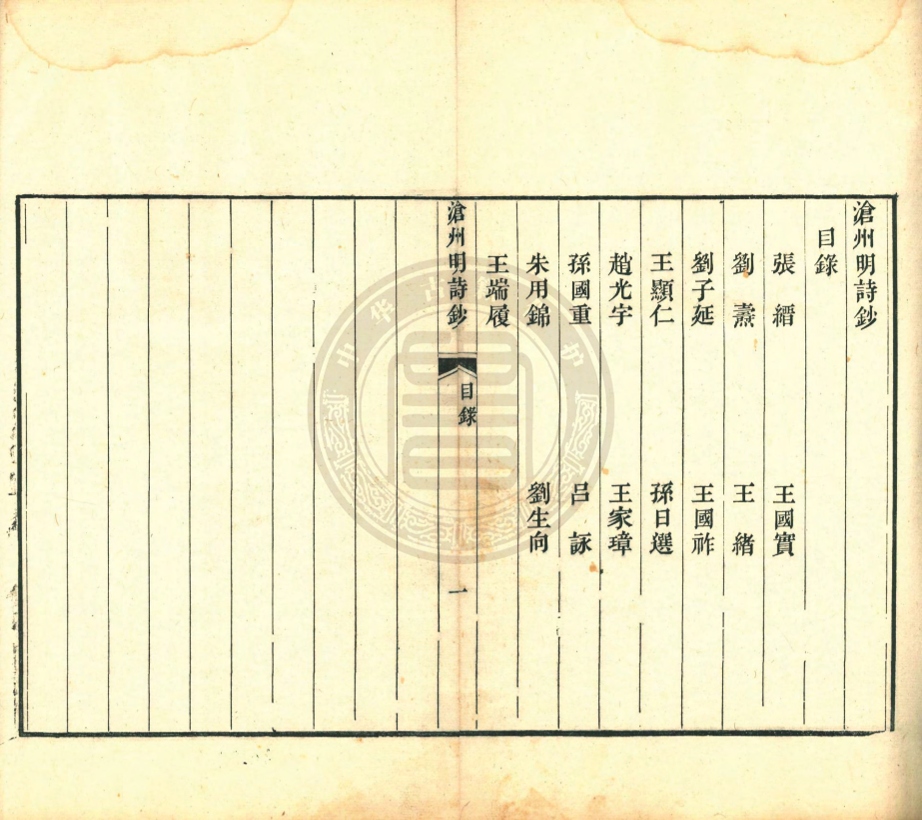 滄州明詩鈔
目錄
張 縉 王國實
劉 燾 王 緒
劉子延 王國祚
王顯仁 孫日選
趙光宇 王家璋
孫國重 呂 詠
朱用錦 劉生向
王端履
滄州明詩鈔 目錄 一